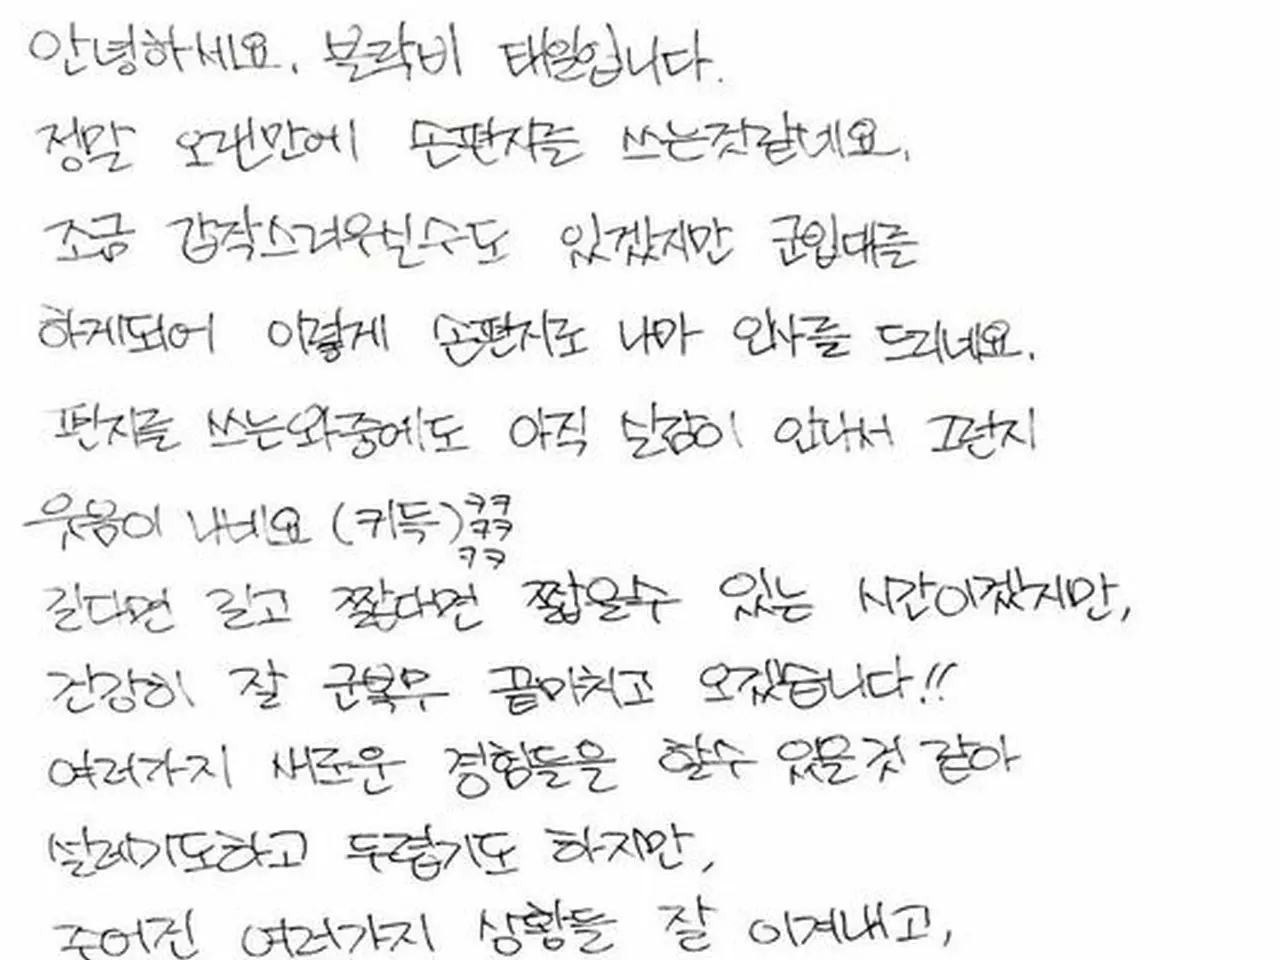 안녕하세요. 블락비 태일입니다.
정말 오랜만에 손편지를 쓰는것같네요.
조금 갑작스러우실수도 있겠지만 군입대를
하게되어 이렇게 손편지로 나마 인사를 드리네요.
편지를 쓰는와중에도 아직 실감이 안나서 그런지
웃음이 나네요 (키득)ㅋㅋ
ㅋㅋ
ㅋㅋ
길다면 길고 짧다면 짧을수 있는 시간이겠지만,
건강히 잘 군복무 끝마치고 오겠습니다!!
여러가지 새로운 경험들을 할수 있을것 같아
설레기도하고 두렵기도 하지만,
주어진 여러가지 상황들 잘 이겨내고,